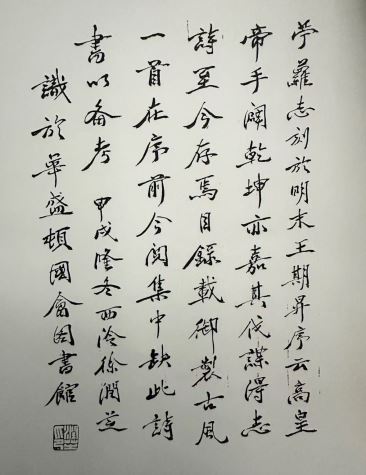 苧蘿志刻於明末王期昇序云高皇
帝手闢乾坤亦嘉其伐謀得志
詩至今存焉目錄載御製古風
一首在序前今閱集中缺此詩
書以备考 甲戌隆冬西泠徐潤芝
識於華盛頓國會图書館